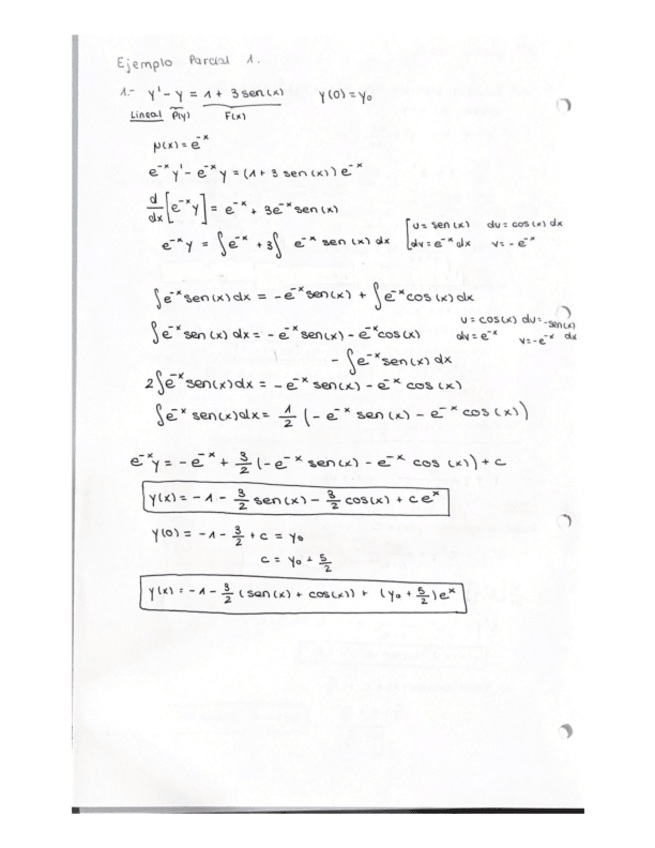 Ejemplo Parcial 1.
1.- y' - y = 1 + 3 sen(x)    y(0) = y₀
Lineal P(y)    F(x)
μ(x) = e⁻ˣ
e⁻ˣ y' - e⁻ˣ y = (1 + 3 sen(x)) e⁻ˣ
d/dx [e⁻ˣ y] = e⁻ˣ + 3e⁻ˣ sen(x)
e⁻ˣ y = ∫e⁻ˣ + 3∫ e⁻ˣ sen(x) dx    [u = sen(x)    du = cos(x) dx
dv = e⁻ˣ dx    v = - e⁻ˣ
∫e⁻ˣ sen(x) dx = - e⁻ˣ sen(x) + ∫e⁻ˣ cos(x) dx
u = cos(x) du = -sen(x) dx
∫e⁻ˣ sen(x) dx = - e⁻ˣ sen(x) - e⁻ˣ cos(x)    dv = e⁻ˣ    v = -e⁻ˣ
- ∫e⁻ˣ sen(x) dx
2∫e⁻ˣ sen(x) dx = - e⁻ˣ sen(x) - e⁻ˣ cos(x)
∫e⁻ˣ sen(x) dx = 1/2 (- e⁻ˣ sen(x) - e⁻ˣ cos(x))
e⁻ˣ y = - e⁻ˣ + 3/2 (- e⁻ˣ sen(x) - e⁻ˣ cos(x)) + c
y(x) = - 1 - 3/2 sen(x) - 3/2 cos(x) + c eˣ
y(0) = - 1 - 3/2 + c = y₀
c = y₀ + 5/2
y(x) = - 1 - 3/2 (sen(x) + cos(x)) + (y₀ + 5/2) eˣ